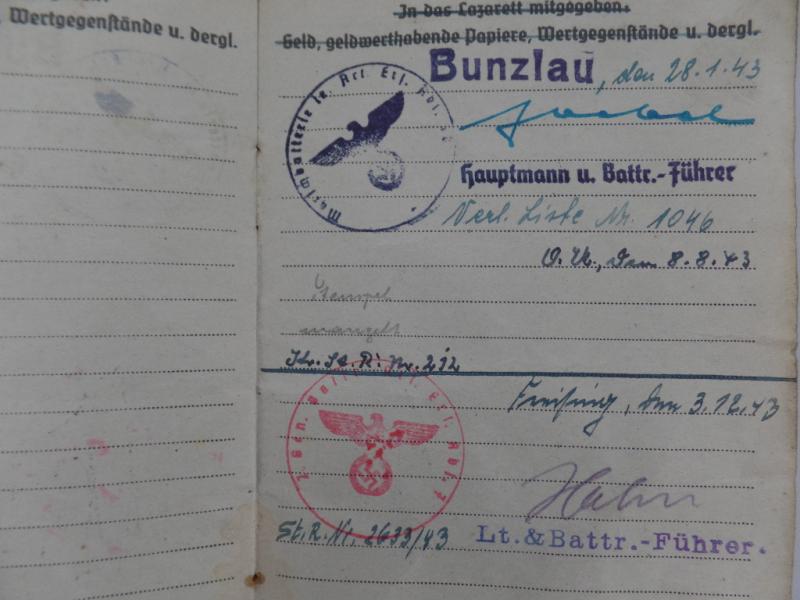 Wertgegenstände u. dergl.
In das Lazarett mitgegeben.
Geld, geldwerthabende Papiere, Wertgegenstände u. dergl.
Bunzlau, den 28.1.43
Hauptmann u. Battr.-Führer
Verl. Liste Nr. 1046
O.U., den 8.8.43
Stempel
mangelt
St. R. Nr. 212
Freising, den 3.12.43
Hahn
St.R.Nr. 2633/43
Lt. & Battr.-Führer.